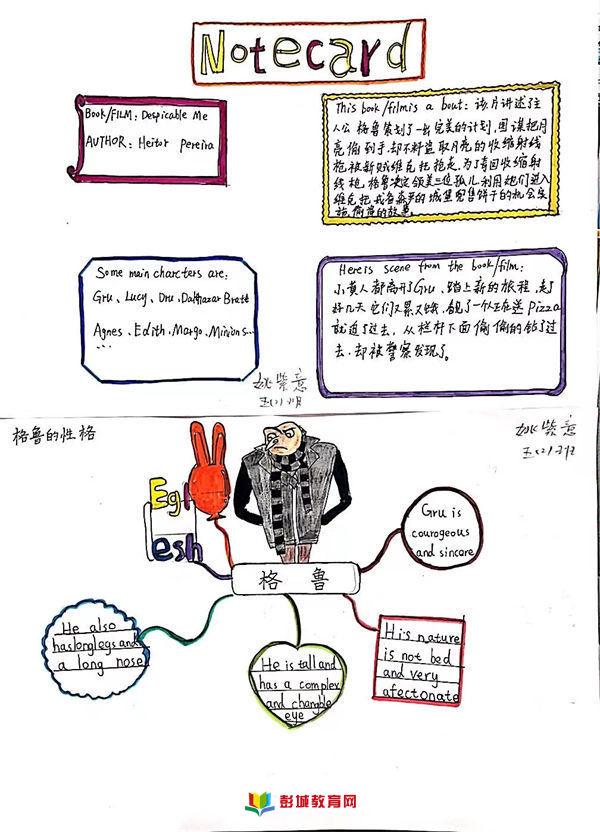 Notecard
BOOK/FILM: Despicable Me
AUTHOR: Heitor Pereira
This book/film is a bout: 该片讲述主
人公格鲁策划了一出完美的计划,图谋把月
亮偷到手,却不料盗取月亮的收缩射线
枪被新贼维克托抢走,为了夺回收缩射
线枪,格鲁决定领养三位孤儿利用她们进入
维克托戒备森严的城堡兜售饼干的机会实
施偷盗的故事。
Some main charcters are:
Gru、Lucy、Dru、Balthazar Bratt
Agnes、Edith、Margo、Minions...
...
Here is scene from the book/film:
小黄人都离开了Gru、踏上新的旅程,走了
好几天它们又累又饿,看见了一个正在送Pizza
就追了过去,从栏杆下面偷偷的钻了过
去,却被警察发现了。
姚紫意
五(2)班
格鲁的性格
姚紫意
五(2)班
Egl
esh
格鲁
Gru is
courogeous
and sincare
He also
haslonglegs and
a long nose
He is tall and
has a complex
and changble
eye
His nature
is not bed
and very
afectonate
彭城教育网